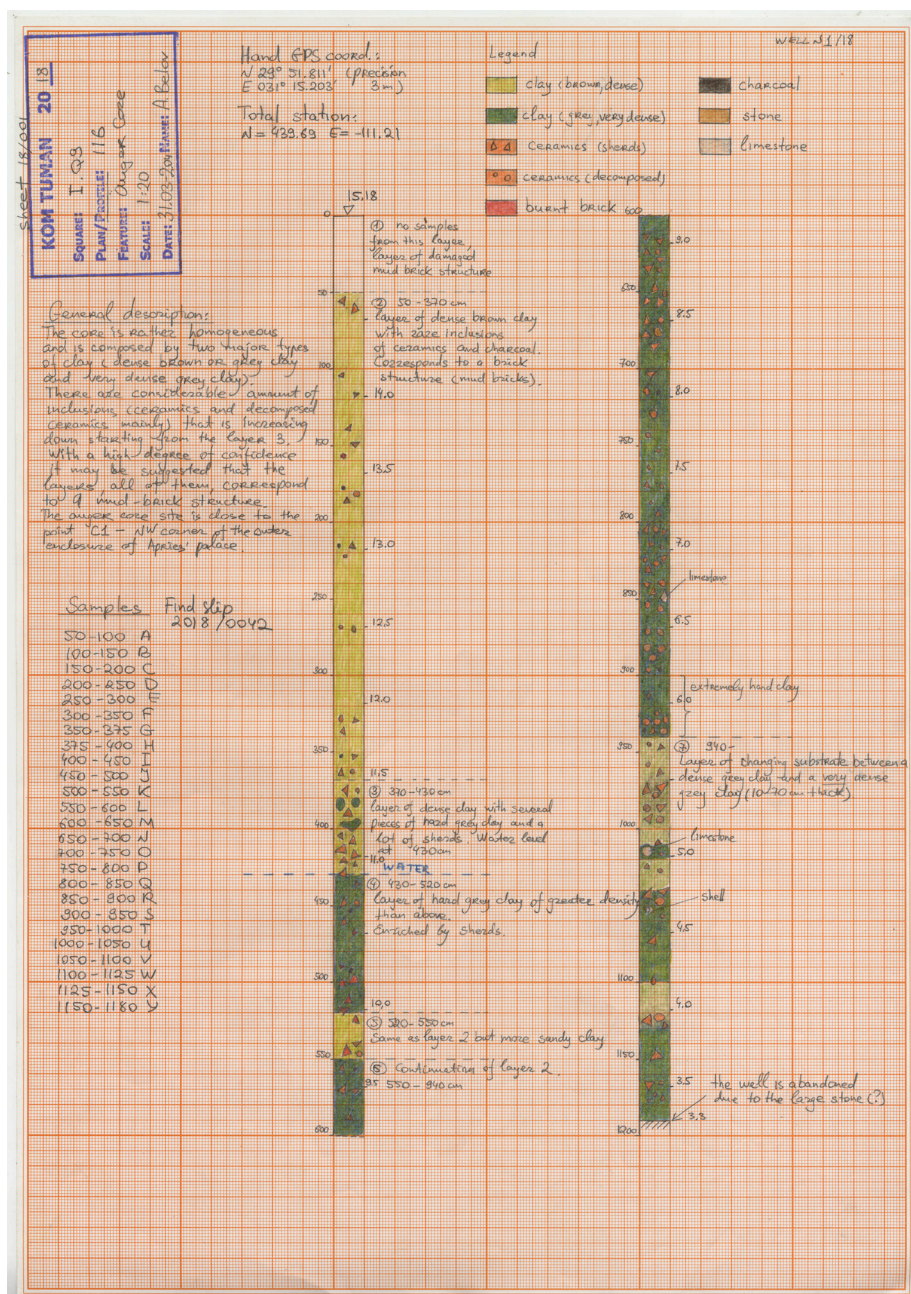 WELL N1/18
sheet 18/001
KOM TUMAN 2018
SQUARE: I.Q9
PLAN/PROFILE: 116
FEATURE: Auger Core
SCALE: 1:20
DATE: 31.03-204 NAME: A.Belov
Hand GPS coord.:
N 29° 51.811' (precision
E 031° 15.203' 3m)
Total station:
N= 939.69 E= -111.21
Legend
clay (brown, dense)
clay (grey, very dense)
ceramics (sherds)
ceramics (decomposed)
burnt brick
charcoal
stone
limestone
General description:
The core is rather homogeneous
and is composed by two major types
of clay (dense brown or grey clay
and very dense grey clay).
There are considerable amount of
inclusions (ceramics and decomposed
ceramics mainly) that is increasing
down starting from the layer 3.
With a high degree of confidence
it may be suggested that the
layers, all of them, correspond
to a mud-brick structure.
The auger core site is close to the
point C1 - NW corner of the outer
enclosure of Apries' palace.
Samples Find slip
2018/0042
50-100 A
100-150 B
150-200 C
200-250 D
250-300 E
300-350 F
350-375 G
375-400 H
400-450 I
450-500 J
500-550 K
550-600 L
600-650 M
650-700 N
700-750 O
750-800 P
800-850 Q
850-900 R
900-950 S
950-1000 T
1000-1050 U
1050-1100 V
1100-1125 W
1125-1150 X
1150-1180 Y
15.18
0
① no samples
from this layer,
layer of damaged
mud brick structure
50
② 50-370 cm
layer of dense brown clay
with rare inclusions
of ceramics and charcoal.
Corresponds to a brick
structure (mud bricks).
100
14.0
150
13.5
200
13.0
250
12.5
300
12.0
350
11.5
③ 370-430 cm
layer of dense clay with several
pieces of hard grey clay and a
lot of sherds. Water level
at 430cm
400
11.0
WATER
④ 430-520 cm
layer of hard grey clay of greater density
than above.
Enriched by sherds.
450
500
10.0
⑤ 520-550 cm
Same as layer 2 but more sandy clay
550
⑥ Continuation of layer 2.
9.5 550-940 cm
600
600
9.0
650
8.5
700
8.0
750
7.5
800
7.0
limestone
850
6.5
900
extremely hard clay
6.0
950
⑦ 940-
Layer of changing substrate between a
dense grey clay and a very dense
grey clay (10-70 cm thick)
1000
limestone
5.0
shell
4.5
1100
4.0
1150
3.5
the well is abandoned
due to the large stone (?)
3.3
1200